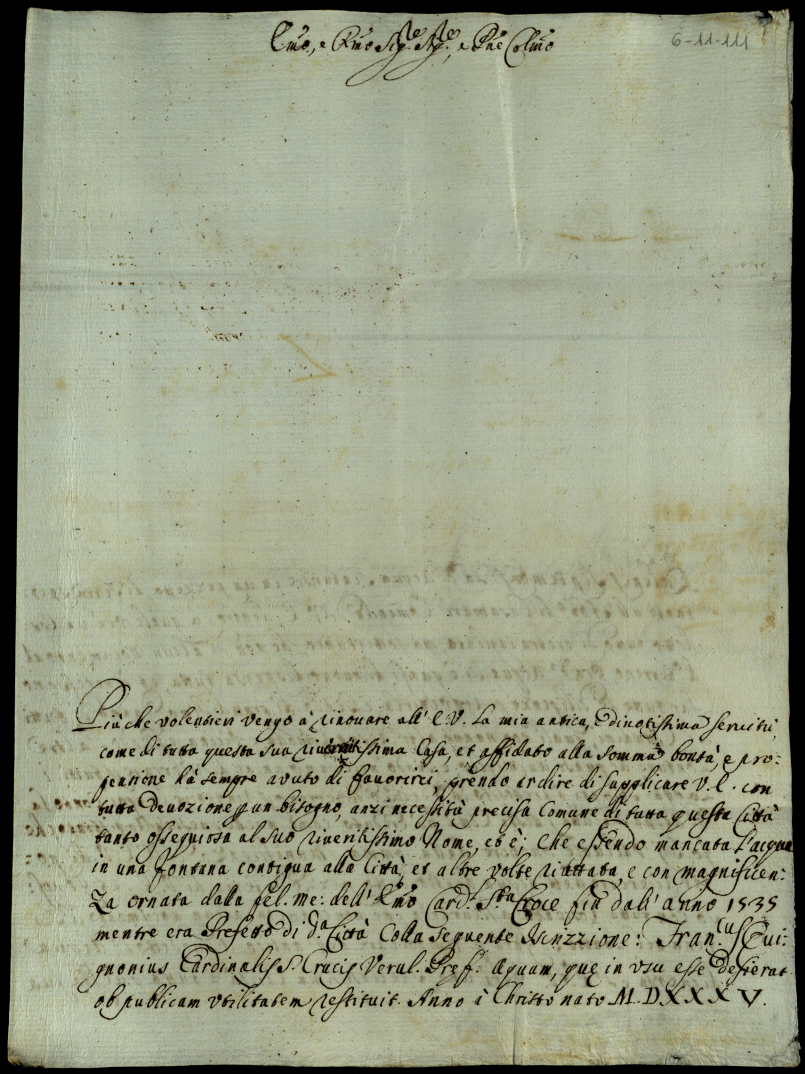 Emo, e Rmo Sig.re Sig.re, e Pne Colmo
6-11-111
Più che volentieri vengo à rinouare all' E.V. la mia antica, e diuotissima seruitù,
come di tutta questa sua riueritissima Casa, et affidato alla somma bontà, e pro-
pensione hà sempre avuto di fauorirci, prendo ardire di supplicare V.E. con
tutta devozione p un bisogno, anzi necessità precisa comune di tutta questa Città
tanto ossequiosa al suo riueritissimo Nome, et è; che essendo mancata l'acqua
in una fontana contigua alla Città, et altre volte riattata, e con magnificen-
za ornata dalla fel: me: dell' Emo Card.l S.ta Croce fin dall' anno 1535
mentre era Prefetto di d.a Città colla seguente Iscrizzione: Fran.cus Qui-
gnonius Cardinalis S. Crucis Verul. Pref. Aquam, quę in usu esse desierat
ob publicam utilitatem restituit. Anno à Christo nato M.DXXXV.